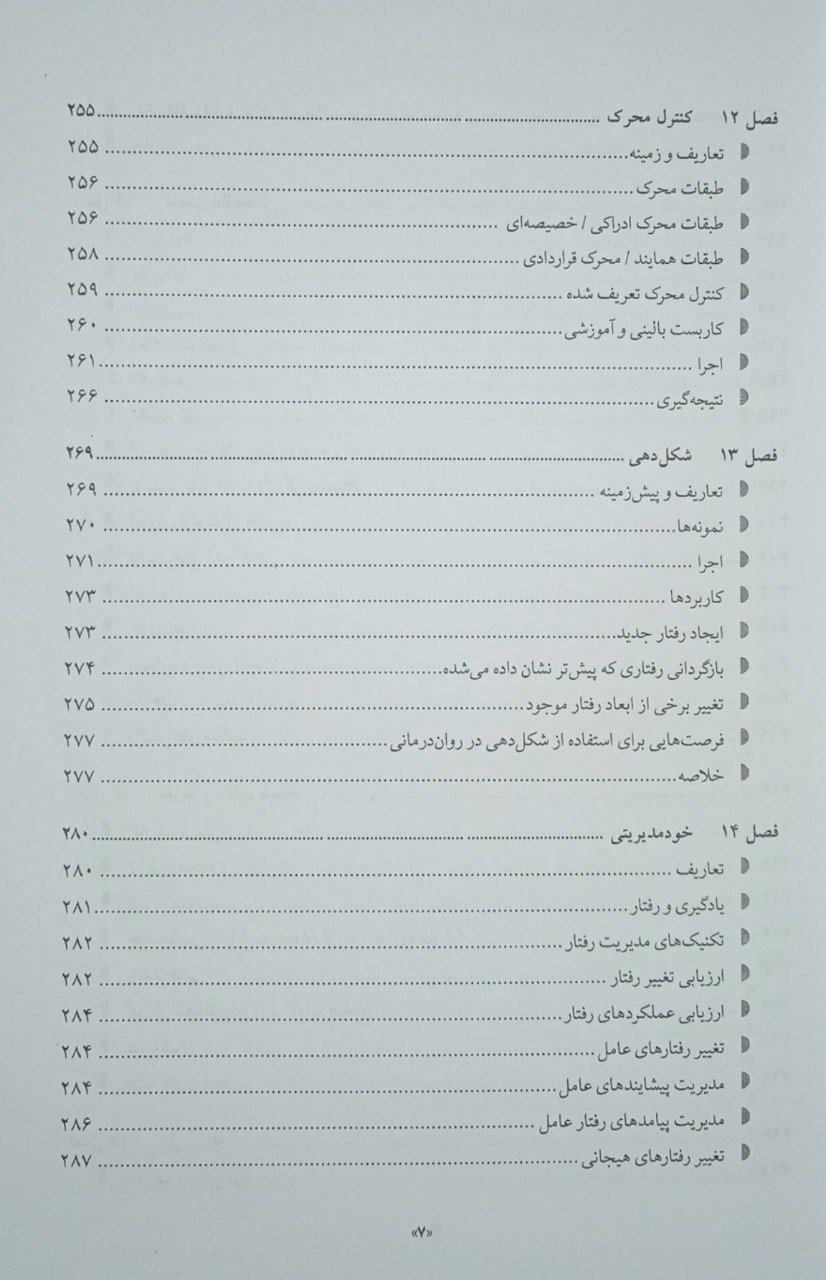 فصل ۱۲ کنترل محرک ........ ۲۵۵
تعاریف و زمینه ........ ۲۵۵
طبقات محرک ........ ۲۵۶
طبقات محرک ادراکی / خصیصه‌ای ........ ۲۵۶
طبقات همایند / محرک قراردادی ........ ۲۵۸
کنترل محرک تعریف شده ........ ۲۵۹
کاربست بالینی و آموزشی ........ ۲۶۰
اجرا ........ ۲۶۱
نتیجه‌گیری ........ ۲۶۶
فصل ۱۳ شکل‌دهی ........ ۲۶۹
تعاریف و پیش‌زمینه ........ ۲۶۹
نمونه‌ها ........ ۲۷۰
اجرا ........ ۲۷۱
کاربردها ........ ۲۷۳
ایجاد رفتار جدید ........ ۲۷۳
بازگردانی رفتاری که پیش‌تر نشان داده می‌شده ........ ۲۷۴
تغییر برخی از ابعاد رفتار موجود ........ ۲۷۵
فرصت‌هایی برای استفاده از شکل‌دهی در روان‌درمانی ........ ۲۷۷
خلاصه ........ ۲۷۷
فصل ۱۴ خودمدیریتی ........ ۲۸۰
تعاریف ........ ۲۸۰
یادگیری و رفتار ........ ۲۸۱
تکنیک‌های مدیریت رفتار ........ ۲۸۲
ارزیابی تغییر رفتار ........ ۲۸۲
ارزیابی عملکردهای رفتار ........ ۲۸۴
تغییر رفتارهای عامل ........ ۲۸۴
مدیریت پیشایندهای عامل ........ ۲۸۴
مدیریت پیامدهای رفتار عامل ........ ۲۸۶
تغییر رفتارهای هیجانی ........ ۲۸۷
«۷»